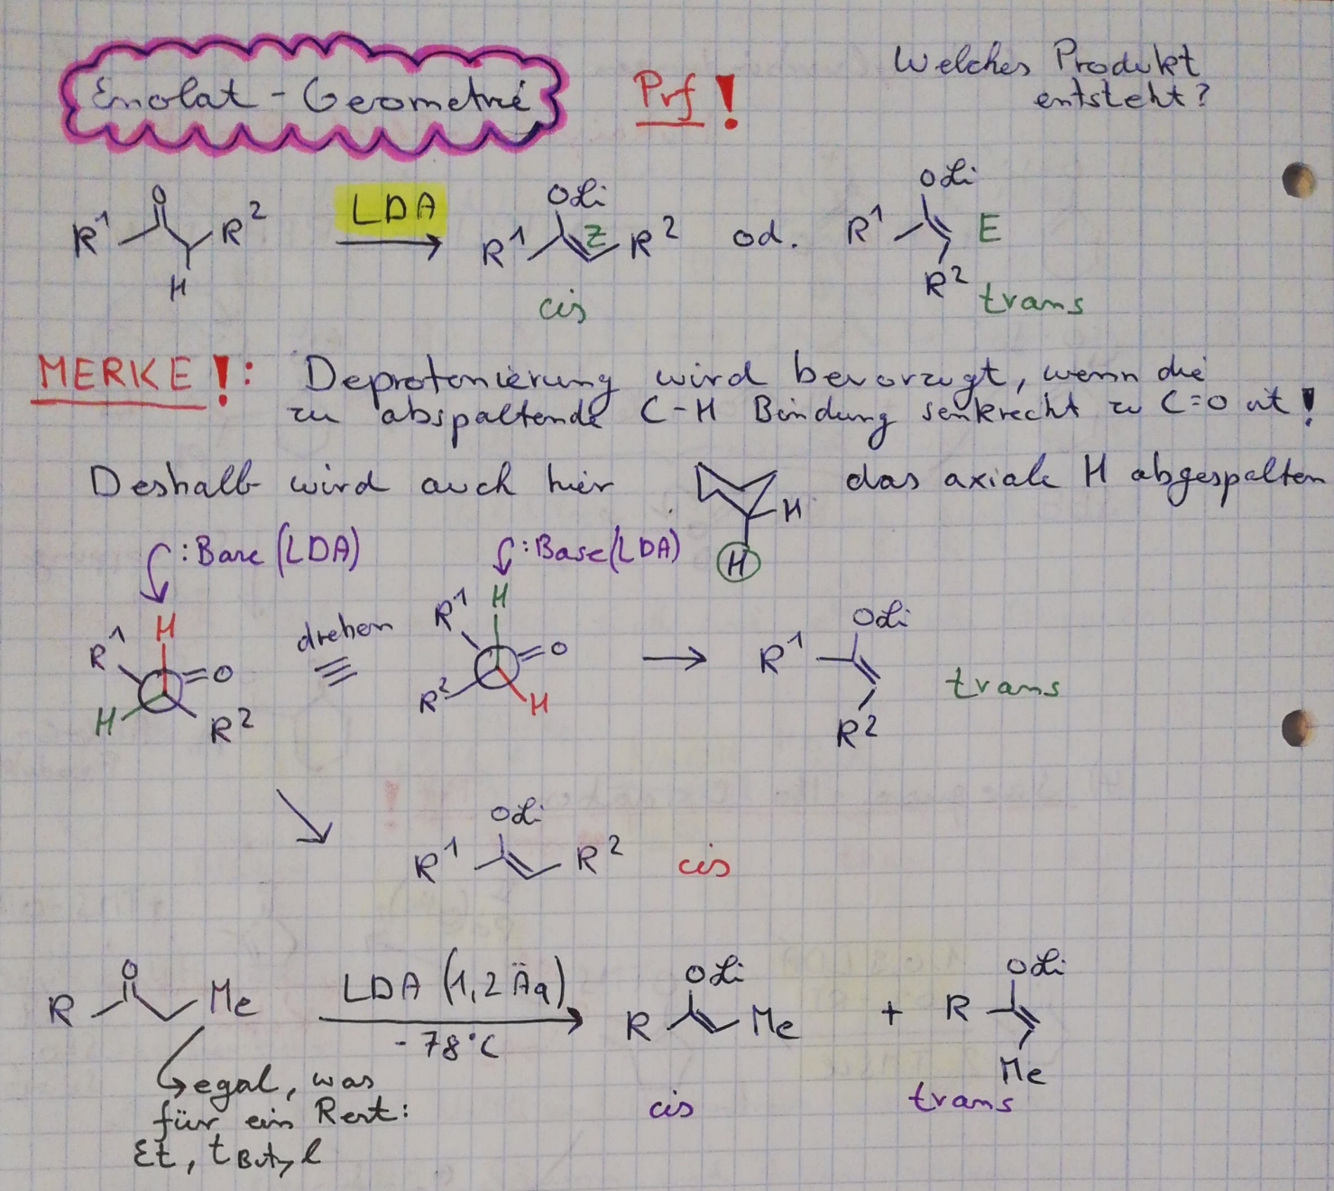 Enolat-Geometrie
Prf!
Welches Produkt
entsteht?
R¹ O R² H
LDA
OLi
R¹ Z R²
cis
od.
OLi
R¹ E
R²
trans
MERKE!: Deprotonierung wird bevorzugt, wenn die
zu abspaltende C-H Bindung senkrecht zu C=O ist!
Deshalb wird auch hier
H
H
das axiale H abgespalten
:Base (LDA)
H
R¹ O
H R²
drehen
:Base (LDA)
R¹ H
O
R² H
OLi
R¹
R²
trans
OLi
R¹ R²
cis
O
R Me
egal, was
für ein Rest:
Et, tButyl
LDA (1,2 Äq)
-78°C
OLi
R Me
cis
+
OLi
R
Me
trans